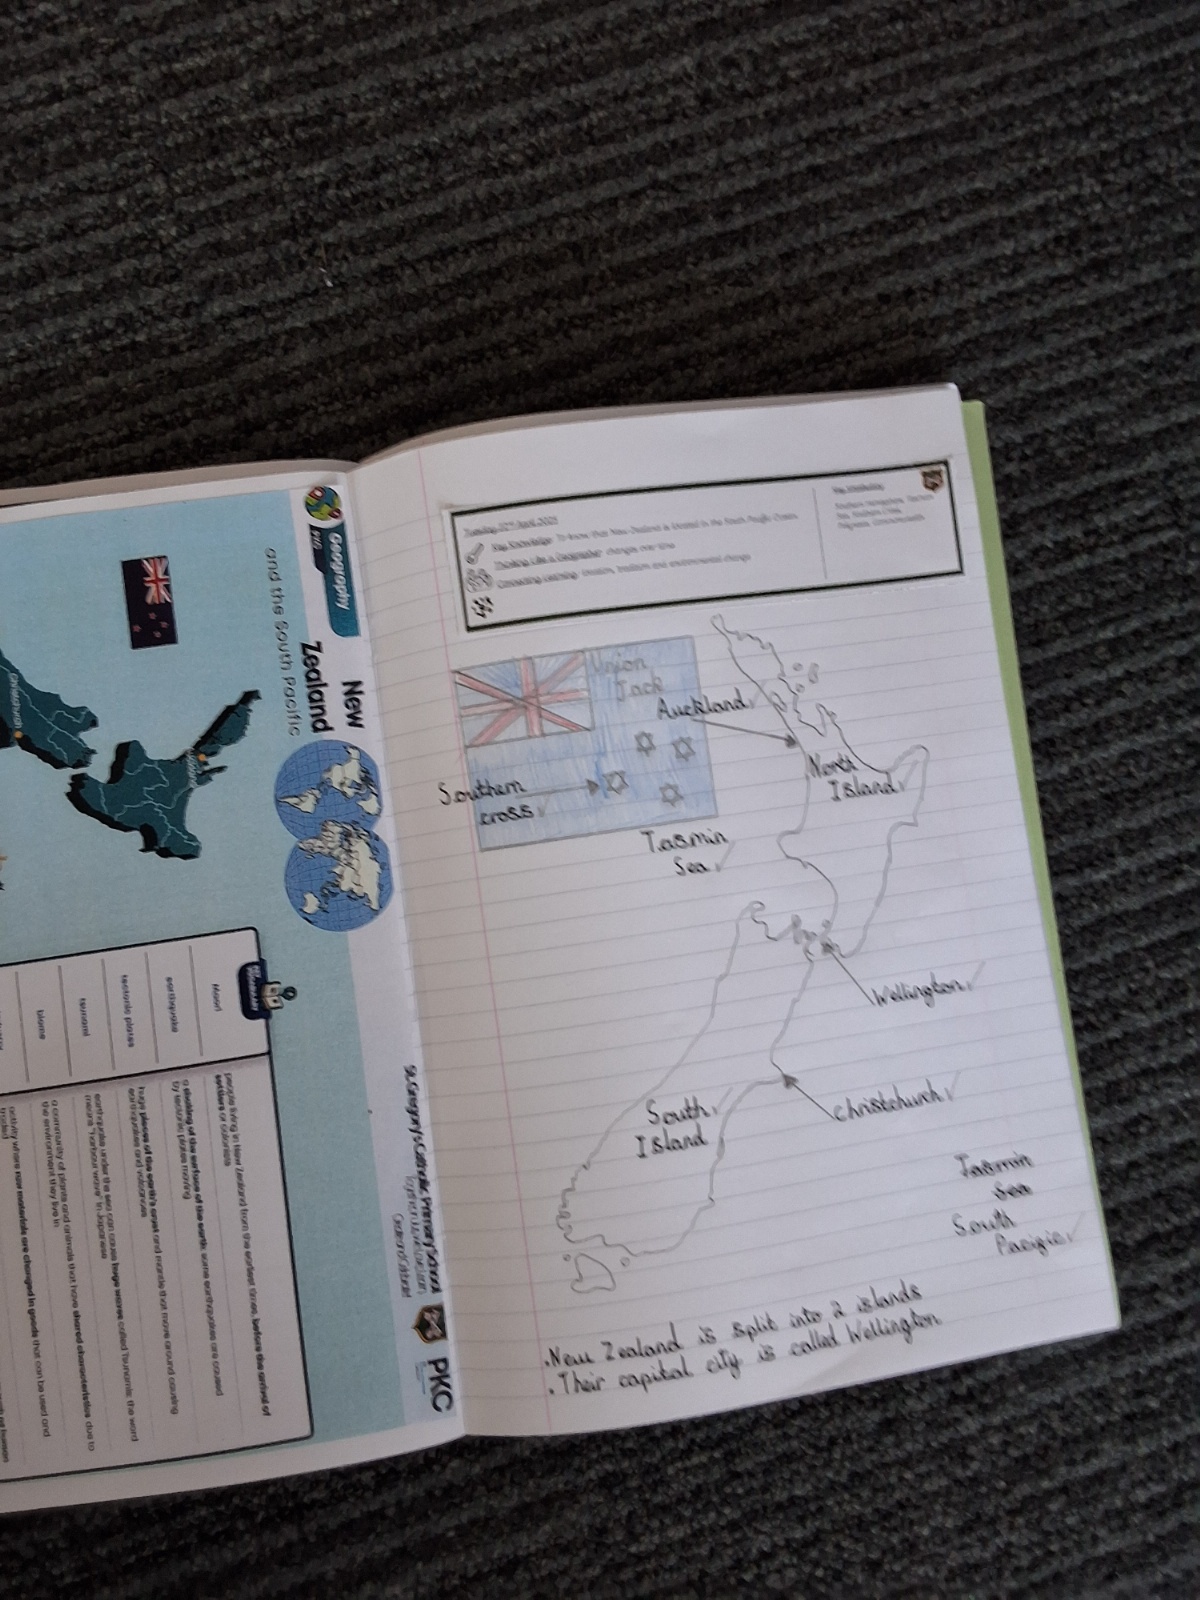 Geography
New
Zealand
and the South Pacific
Christchurch
Auckland
Maori
people living in New Zealand from the earliest times, before the arrival of
settlers or colonisers
earthquake
a shaking of the surface of the earth; some earthquakes are caused
by tectonic plates moving
tectonic plates
huge pieces of the earth's crust and mantle that move around causing
earthquakes and volcanoes
tsunami
earthquakes under the sea can cause huge waves called tsunamis; the word
means "harbour wave" in Japanese
biome
a community of plants and animals that have shared characteristics due to
the environment they live in
activity where raw materials are changed in goods that can be used and
traded
St. Gregory's Catholic Primary School
PKC
Tuesday 22nd April 2025
Key Knowledge: To know that New Zealand is located in the South Pacific Ocean.
Thinking Like a Geographer: changes over time
Connecting Learning: location, tradition and environmental change
Key Vocabulary
Union
Jack
Auckland
North
Island
Southern
cross
Tasmin
Sea
Wellington
christchurch
South
Island
Tasmin
Sea
South
Pacific
. New Zealand is split into 2 islands
. Their capital city is called Wellington